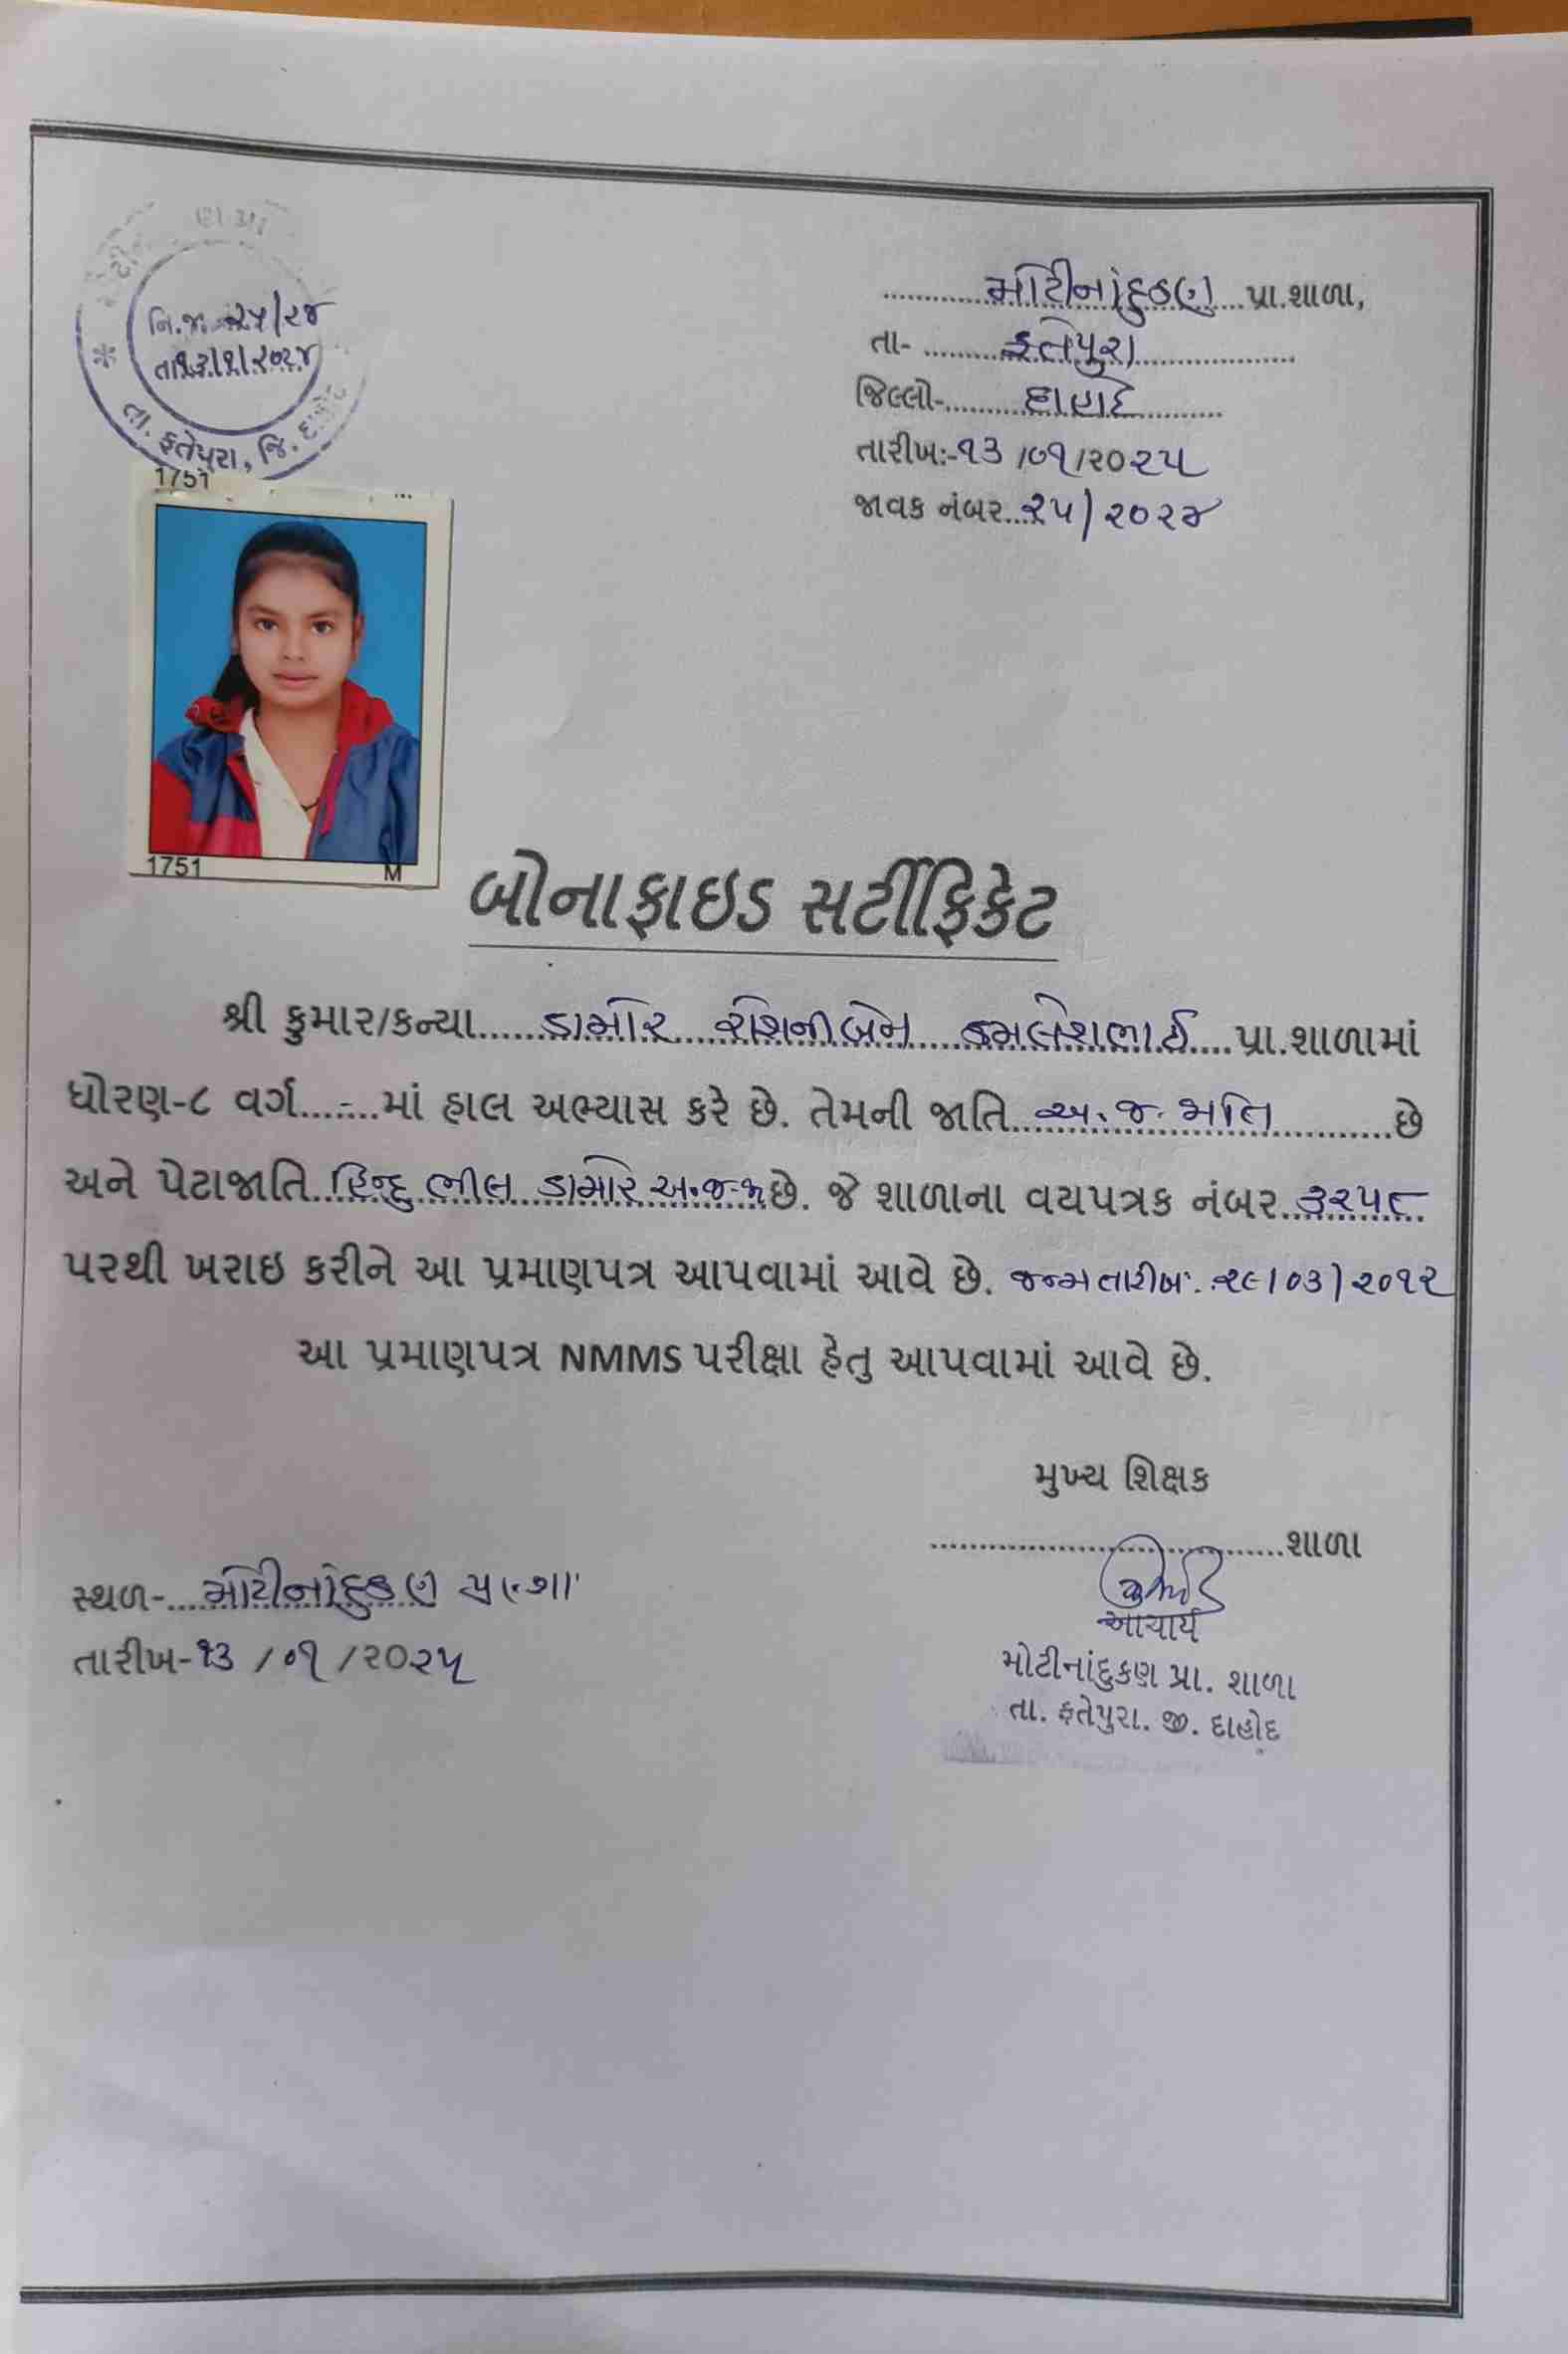 નિ.જા. ૨૫/૨૪
તા.૧૩/૧/૨૦૨૪
તા. ફતેપુરા, જિ. દાહોદ
મોટીનાંદુકણ પ્રા.શાળા,
તા- ફતેપુરા
જિલ્લો- દાહોદ
તારીખ:-૧૩ /૦૧/૨૦૨૫
જાવક નંબર...૨૫/૨૦૨૪
1751
1751 M
બોનાફાઇડ સર્ટીફિકેટ
શ્રી કુમાર/કન્યા......ડામોર રોશનીબેન કમલેશભાઈ....પ્રા.શાળામાં
ધોરણ-૮ વર્ગ...-...માં હાલ અભ્યાસ કરે છે. તેમની જાતિ...અ.જ.જાતિ...છે
અને પેટાજાતિ..હિન્દુ ભીલ ડામોર અ.જ.જા છે. જે શાળાના વયપત્રક નંબર..૩૨૫૯
પરથી ખરાઇ કરીને આ પ્રમાણપત્ર આપવામાં આવે છે. જન્મ તારીખ. ૨૯/૦૩/૨૦૧૨
આ પ્રમાણપત્ર NMMS પરીક્ષા હેતુ આપવામાં આવે છે.
મુખ્ય શિક્ષક
શાળા
સ્થળ-....મોટીનાંદુકણ પ્રા.શા
તારીખ-૧૩ /૦૧ /૨૦૨૫
આચાર્ય
મોટીનાંદુકણ પ્રા. શાળા
તા. ફતેપુરા. જી. દાહોદ